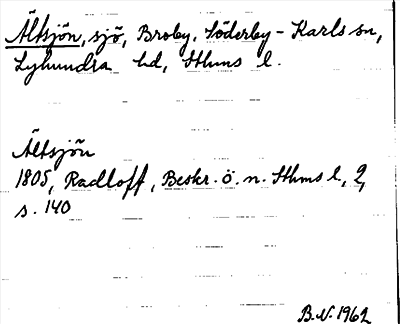 Ältsjön, sjö, Broby, Söderby-Karls sn,
Lyhundra hd, Sthms l.
Ältsjön
1805, Radloff, Beskr. ö. n. Sthms l, 2,
s. 140
B.N. 1962